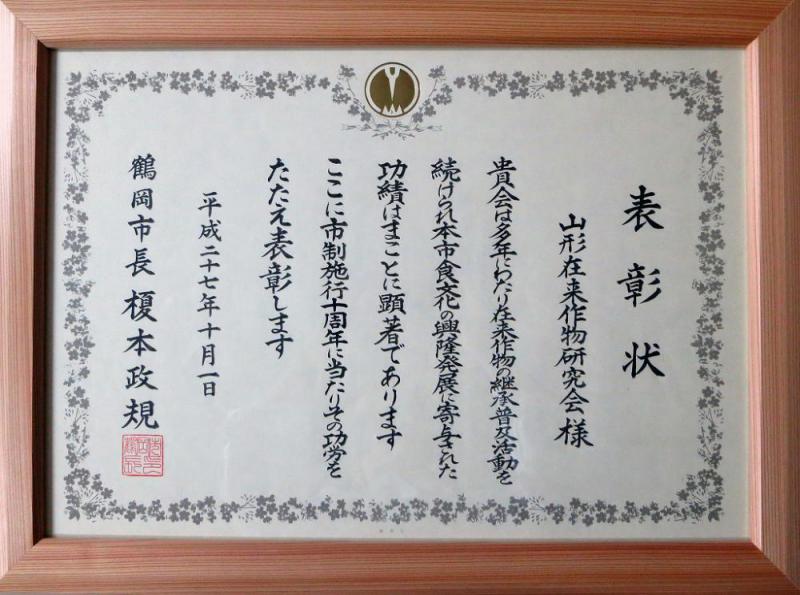 表彰状
山形在来作物研究会様
貴会は多年にわたり在来作物の継承普及活動を
続けられ本市食文化の興隆発展に寄与された
功績はまことに顕著であります
ここに市制施行十周年に当たりその功労を
たたえ表彰します
平成二十七年十月一日
鶴岡市長 榎本政規